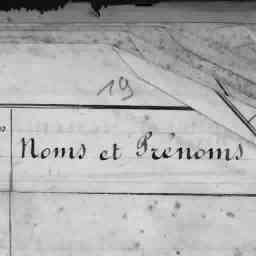 19
Noms et Prénoms